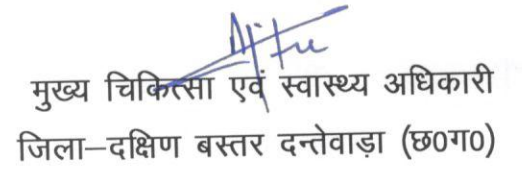 मुख्य चिकित्सा एवं स्वास्थ्य अधिकारी
जिला–दक्षिण बस्तर दन्तेवाड़ा (छ0ग0)